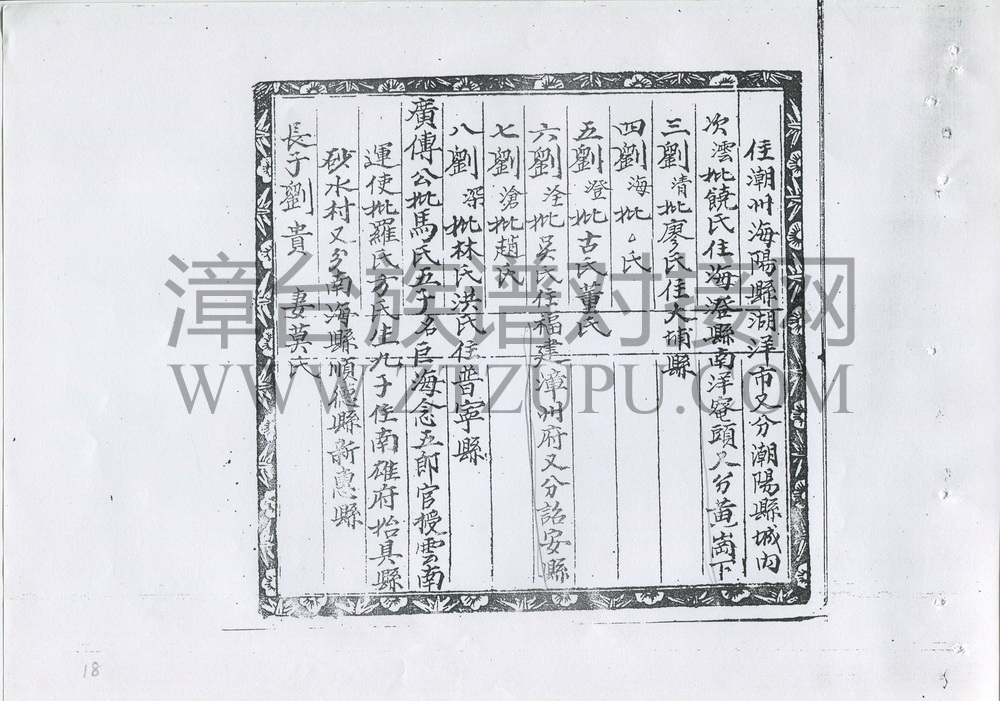 住潮州海陽縣湖洋市又分潮陽縣城內
次澐批饒氏住海澄縣南洋窖頭又分黃崗下
三劉清批廖氏住大埔縣
四劉海批△氏
五劉澄批古氏董氏
六劉淦批吴氏住福建漳州府又分詔安縣
七劉滄批趙氏
八劉深批林氏洪氏住普寧縣
廣傳公批馬氏五子名巨海念五郎官授雲南
運使批羅氏方氏生九子住南雄府抬具縣
砂水村又分南海縣順德縣新惠縣
長子劉貴 妻莫氏
漳台族谱对接网
WWW.ZTZUPU.COM
18